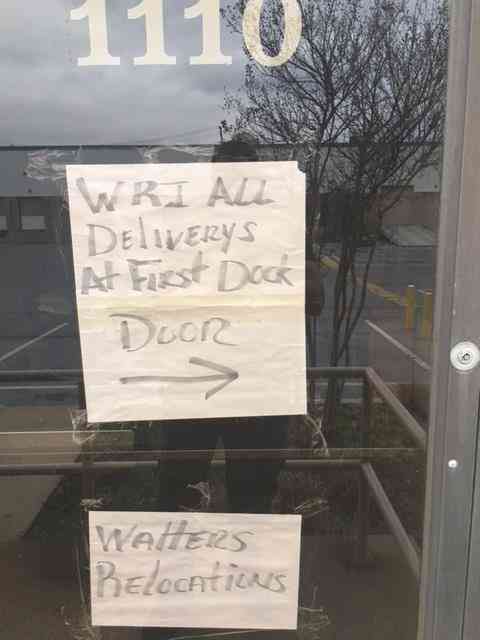 1110
WRI ALL
DELIVERYS
At FIRST DOCK
DOOR
WATTERS
RELOCATIONS